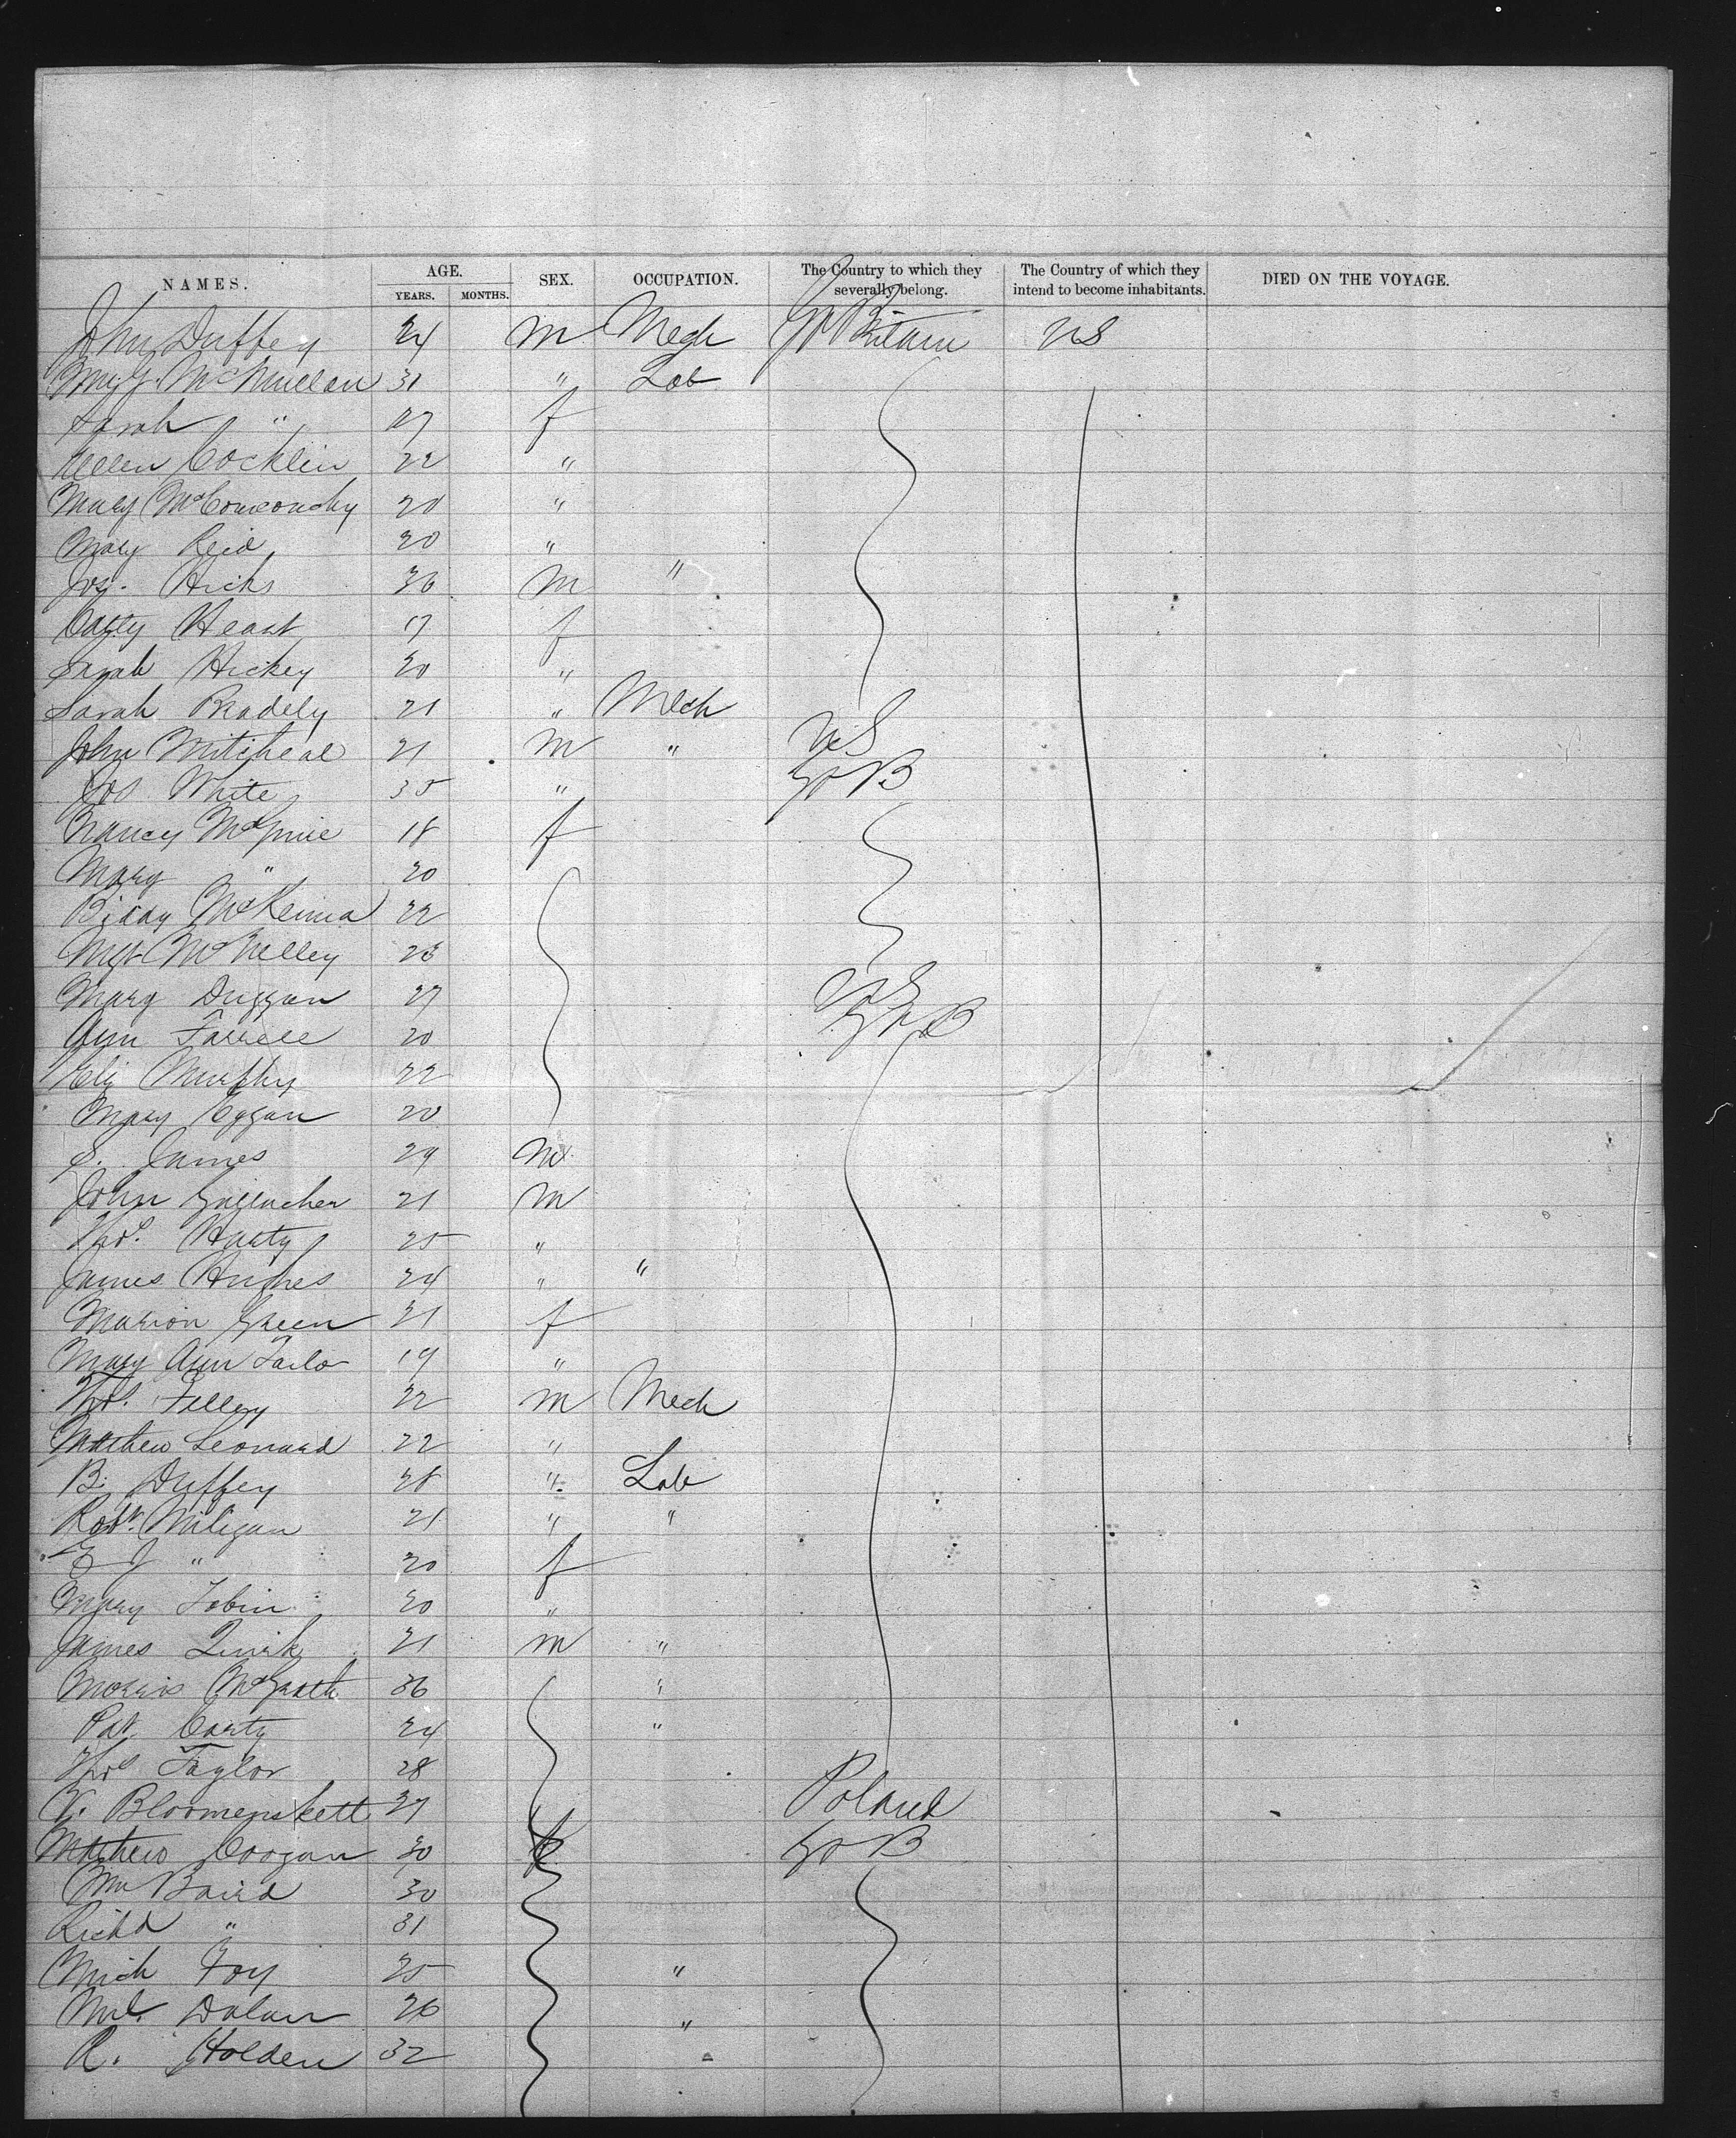 NAMES. AGE. YEARS. MONTHS. SEX. OCCUPATION. The Country to which they severally belong. The Country of which they intend to become inhabitants. DIED ON THE VOYAGE.
John Duffey 24 M Mech Gr Britain US
McMullan 31 " Lab
Sarah " 27 f
Ellen Cocklin 22 "
Mary McConnonchy 20 "
Mary Reid 20 "
Jos. Hicks 30 M "
Catty Heart 17 f
Sarah Hickey 20 "
Sarah Bradely 21 " Mech
John Mitcheal 21 M " US
Jos White 35 " Gr B
Nancy McGuire 18 f
Mary " 20
Biddy McKenna 22
Mgt McNelley 23
Mary Duggan 27 US
Ann Farrell 20 Gr B
Eliz Murphy 22
Mary Eggan 20
S. James 29 M
John Gallacher 21 M
Thos. Harty 25 "
James Hughes 24 " "
Marion Green 21 f
Mary Ann Tailor 19 "
Thos. Felley 22 M Mech
Matthew Leonard 22 "
B. Duffey 28 " Lab
Robt. Miligan 21 " "
E J " 20 f
Mary Tobin 20 "
James Quirk 21 M "
Morris McGrath 36 "
Pat Carty 24 "
Thos Taylor 28
Bloomenskett 27 Poland
Matthew Coogan 30 Gr B
Wm Baird 30
Richd " 31
Mich Foy 25 "
Dolan 26 "
R. Holden 32 "